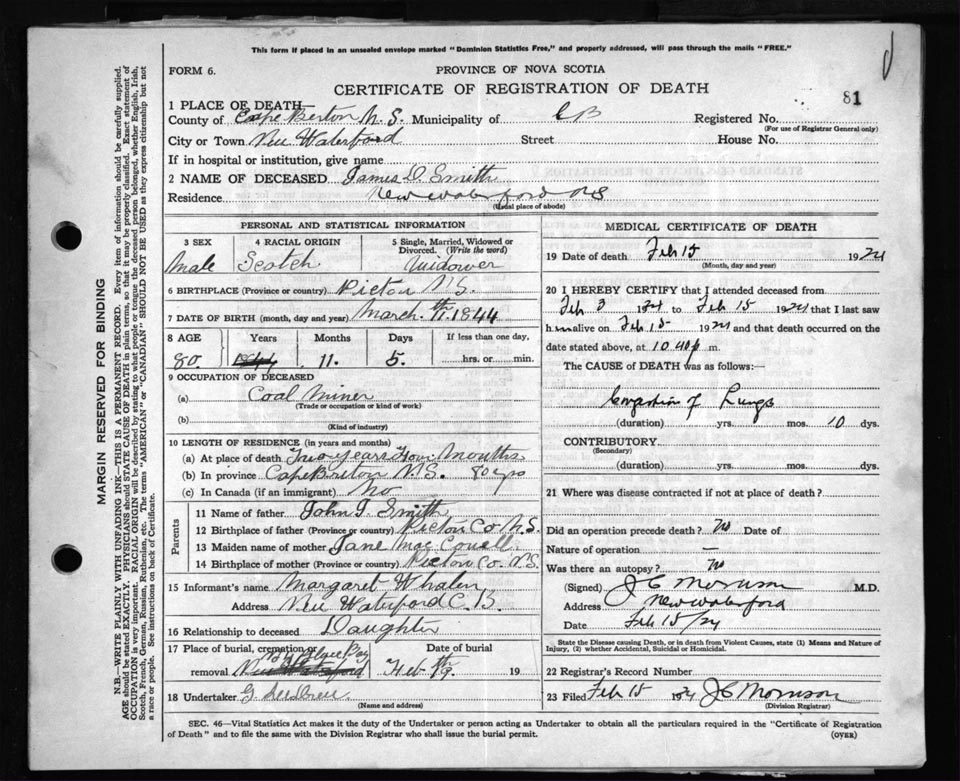 This form if placed in an unsealed envelope marked "Dominion Statistics Free," and properly addressed, will pass through the mails "FREE."
FORM 6.
PROVINCE OF NOVA SCOTIA
CERTIFICATE OF REGISTRATION OF DEATH
81
1 PLACE OF DEATH—
County of Cape Berton N.S. Municipality of CB Registered No.
(For use of Registrar General only)
City or Town New Waterford Street House No.
If in hospital or institution, give name
2 NAME OF DECEASED James D. Smith
Residence New Waterford NS
(Usual place of abode)
PERSONAL AND STATISTICAL INFORMATION
3 SEX 4 RACIAL ORIGIN 5 Single, Married, Widowed or Divorced. (Write the word)
Male Scotch Widower
6 BIRTHPLACE (Province or country) Pictou N.S.
7 DATE OF BIRTH (month, day and year) March 11th 1844
8 AGE Years Months Days If less than one day,
80. 11. 5. hrs. or min.
9 OCCUPATION OF DECEASED
(a) Coal Miner
(Trade or occupation or kind of work)
(b)
(Kind of industry)
10 LENGTH OF RESIDENCE (in years and months)
(a) At place of death Two years Four Months
(b) In province Cape Breton N.S. 80 yrs
(c) In Canada (if an immigrant) No
Parents
11 Name of father John T. Smith
12 Birthplace of father (Province or country) Pictou Co N.S.
13 Maiden name of mother Jane Mac
14 Birthplace of mother (Province or country) Pictou Co. N.S.
15 Informant's name Margaret Whalen
Address New Waterford C.B.
16 Relationship to deceased Daughter
17 Place of burial, cremation or removal Glace Bay New Waterford
Date of burial Feb 19
18 Undertaker G.
(Name and address)
MEDICAL CERTIFICATE OF DEATH
19 Date of death Feb 15 1924
(Month, day and year)
20 I HEREBY CERTIFY that I attended deceased from
Feb 3 1924 to Feb 15 1924 that I last saw
him alive on Feb 15 1924 and that death occurred on the
date stated above, at 10 40 p m.
The CAUSE of DEATH was as follows:—
Congestion of Lungs
(duration) yrs. mos. 10 dys.
CONTRIBUTORY.
(Secondary)
(duration) yrs. mos. dys.
21 Where was disease contracted if not at place of death?
Did an operation precede death? No Date of
Nature of operation —
Was there an autopsy? No
(Signed) J C Morrison M.D.
Address New Waterford
Date Feb 15/24
State the Disease causing Death, or in death from Violent Causes, state (1) Means and Nature of Injury, (2) whether Accidental, Suicidal or Homicidal.
22 Registrar's Record Number
23 Filed Feb 15 1924 J C Morrison
(Division Registrar)
SEC. 46—Vital Statistics Act makes it the duty of the Undertaker or person acting as Undertaker to obtain all the particulars required in the "Certificate of Registration
of Death" and to file the same with the Division Registrar who shall issue the burial permit.
(OVER)
MARGIN RESERVED FOR BINDING
N.B.—WRITE PLAINLY WITH UNFADING INK—THIS IS A PERMANENT RECORD. Every item of information should be carefully supplied.
AGE should be stated EXACTLY. PHYSICIANS should STATE CAUSE OF DEATH in plain terms, so that it may be properly classified. Exact statement of
OCCUPATION is very important. RACIAL ORIGIN will be described by stating to what people or tongue the deceased person belonged, whether English, Irish,
Scotch, French, German, Russian, Ruthenian, etc. The terms "AMERICAN" or "CANADIAN" SHOULD NOT BE USED as they express citizenship but not
a race or people. See instructions on back of Certificate.